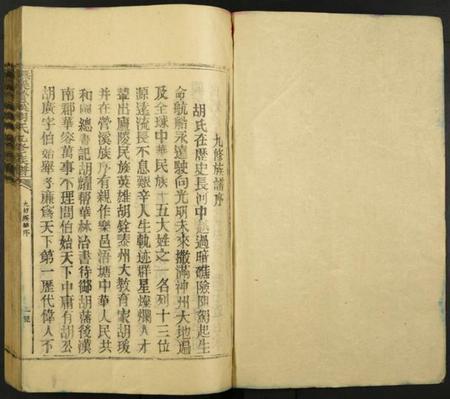 九修族譜序
胡氏在歷史長河中越過暗礁險陣駕起生
命航船永遠駛向光明未來撒滿神州大地遍
及全球中華民族十五大姓之一名列十三位
源遠流長不息艱辛人生軌跡群星燦爛人才
輩出廬陵民族英雄胡銓泰州大教育家胡瑗
并在營溪族序有親作樂邑浯塘中華人民共
和國總書記胡耀幫華林治書待御胡藩後漢
南郡華容萬事不理問伯始天下中庸有胡公
胡廣字伯始舉孝廉爲天下第一歷代偉人不
胡氏九修族譜
九修族譜序